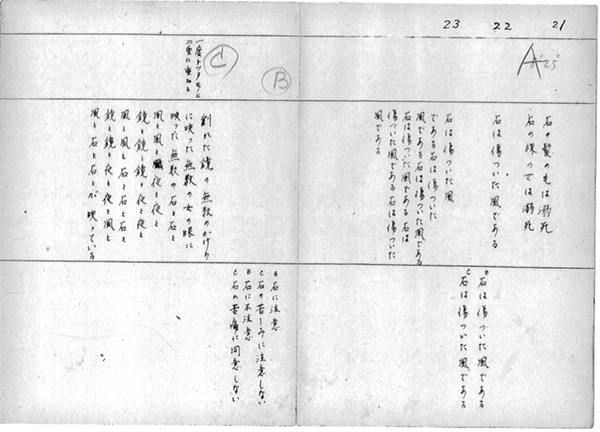 21
22
23
A
25
石の髪の毛は溺死
石の裸の女は溺死
石は傷ついた風である
石は傷ついた風
である石は傷ついた
風である石は傷ついた風
石は傷ついた風である石は
傷ついた風である石は傷ついた
風である
B 石は傷ついた風である
C 石は傷ついた風である
B
C
一度トッタモノに
二重に重ねる
割れた鏡の無数のかけら
に映った無数の女の眼に
映った無数の石と石と
風と風と風夜と夜と
鏡と鏡と鏡と夜と夜と
風と風と石と石と石と
鏡と鏡と夜と夜と風と
風と石と石とが映っている
B 石に注意
C 石の苦しみに注意しない
B 石に不注意
C 石の苦痛に同意しない